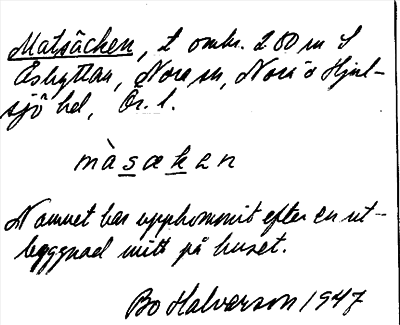 Matsäcken, t omkr. 200 m S
Åshyttan, Nora sn, Nora o Hjul-
sjö hd, Ör. l.
màsækən
Namnet har uppkommit efter en ut-
byggnad mitt på huset.
Bo Halvarson 1947